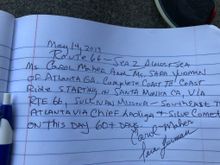 May 14, 2019
Route 66 - Sea 2 Shining Sea
Ms. Carol Maher and Ms. Sara
of Atlanta GA. Complete Coast to Coast
Ride starting in Santa Monica CA, via
Rte 66, Sullivan Missouri - Southeast to
Atlanta via Chief Ladiga & Silver Comet
on this day 60+ days.
Carol Maher